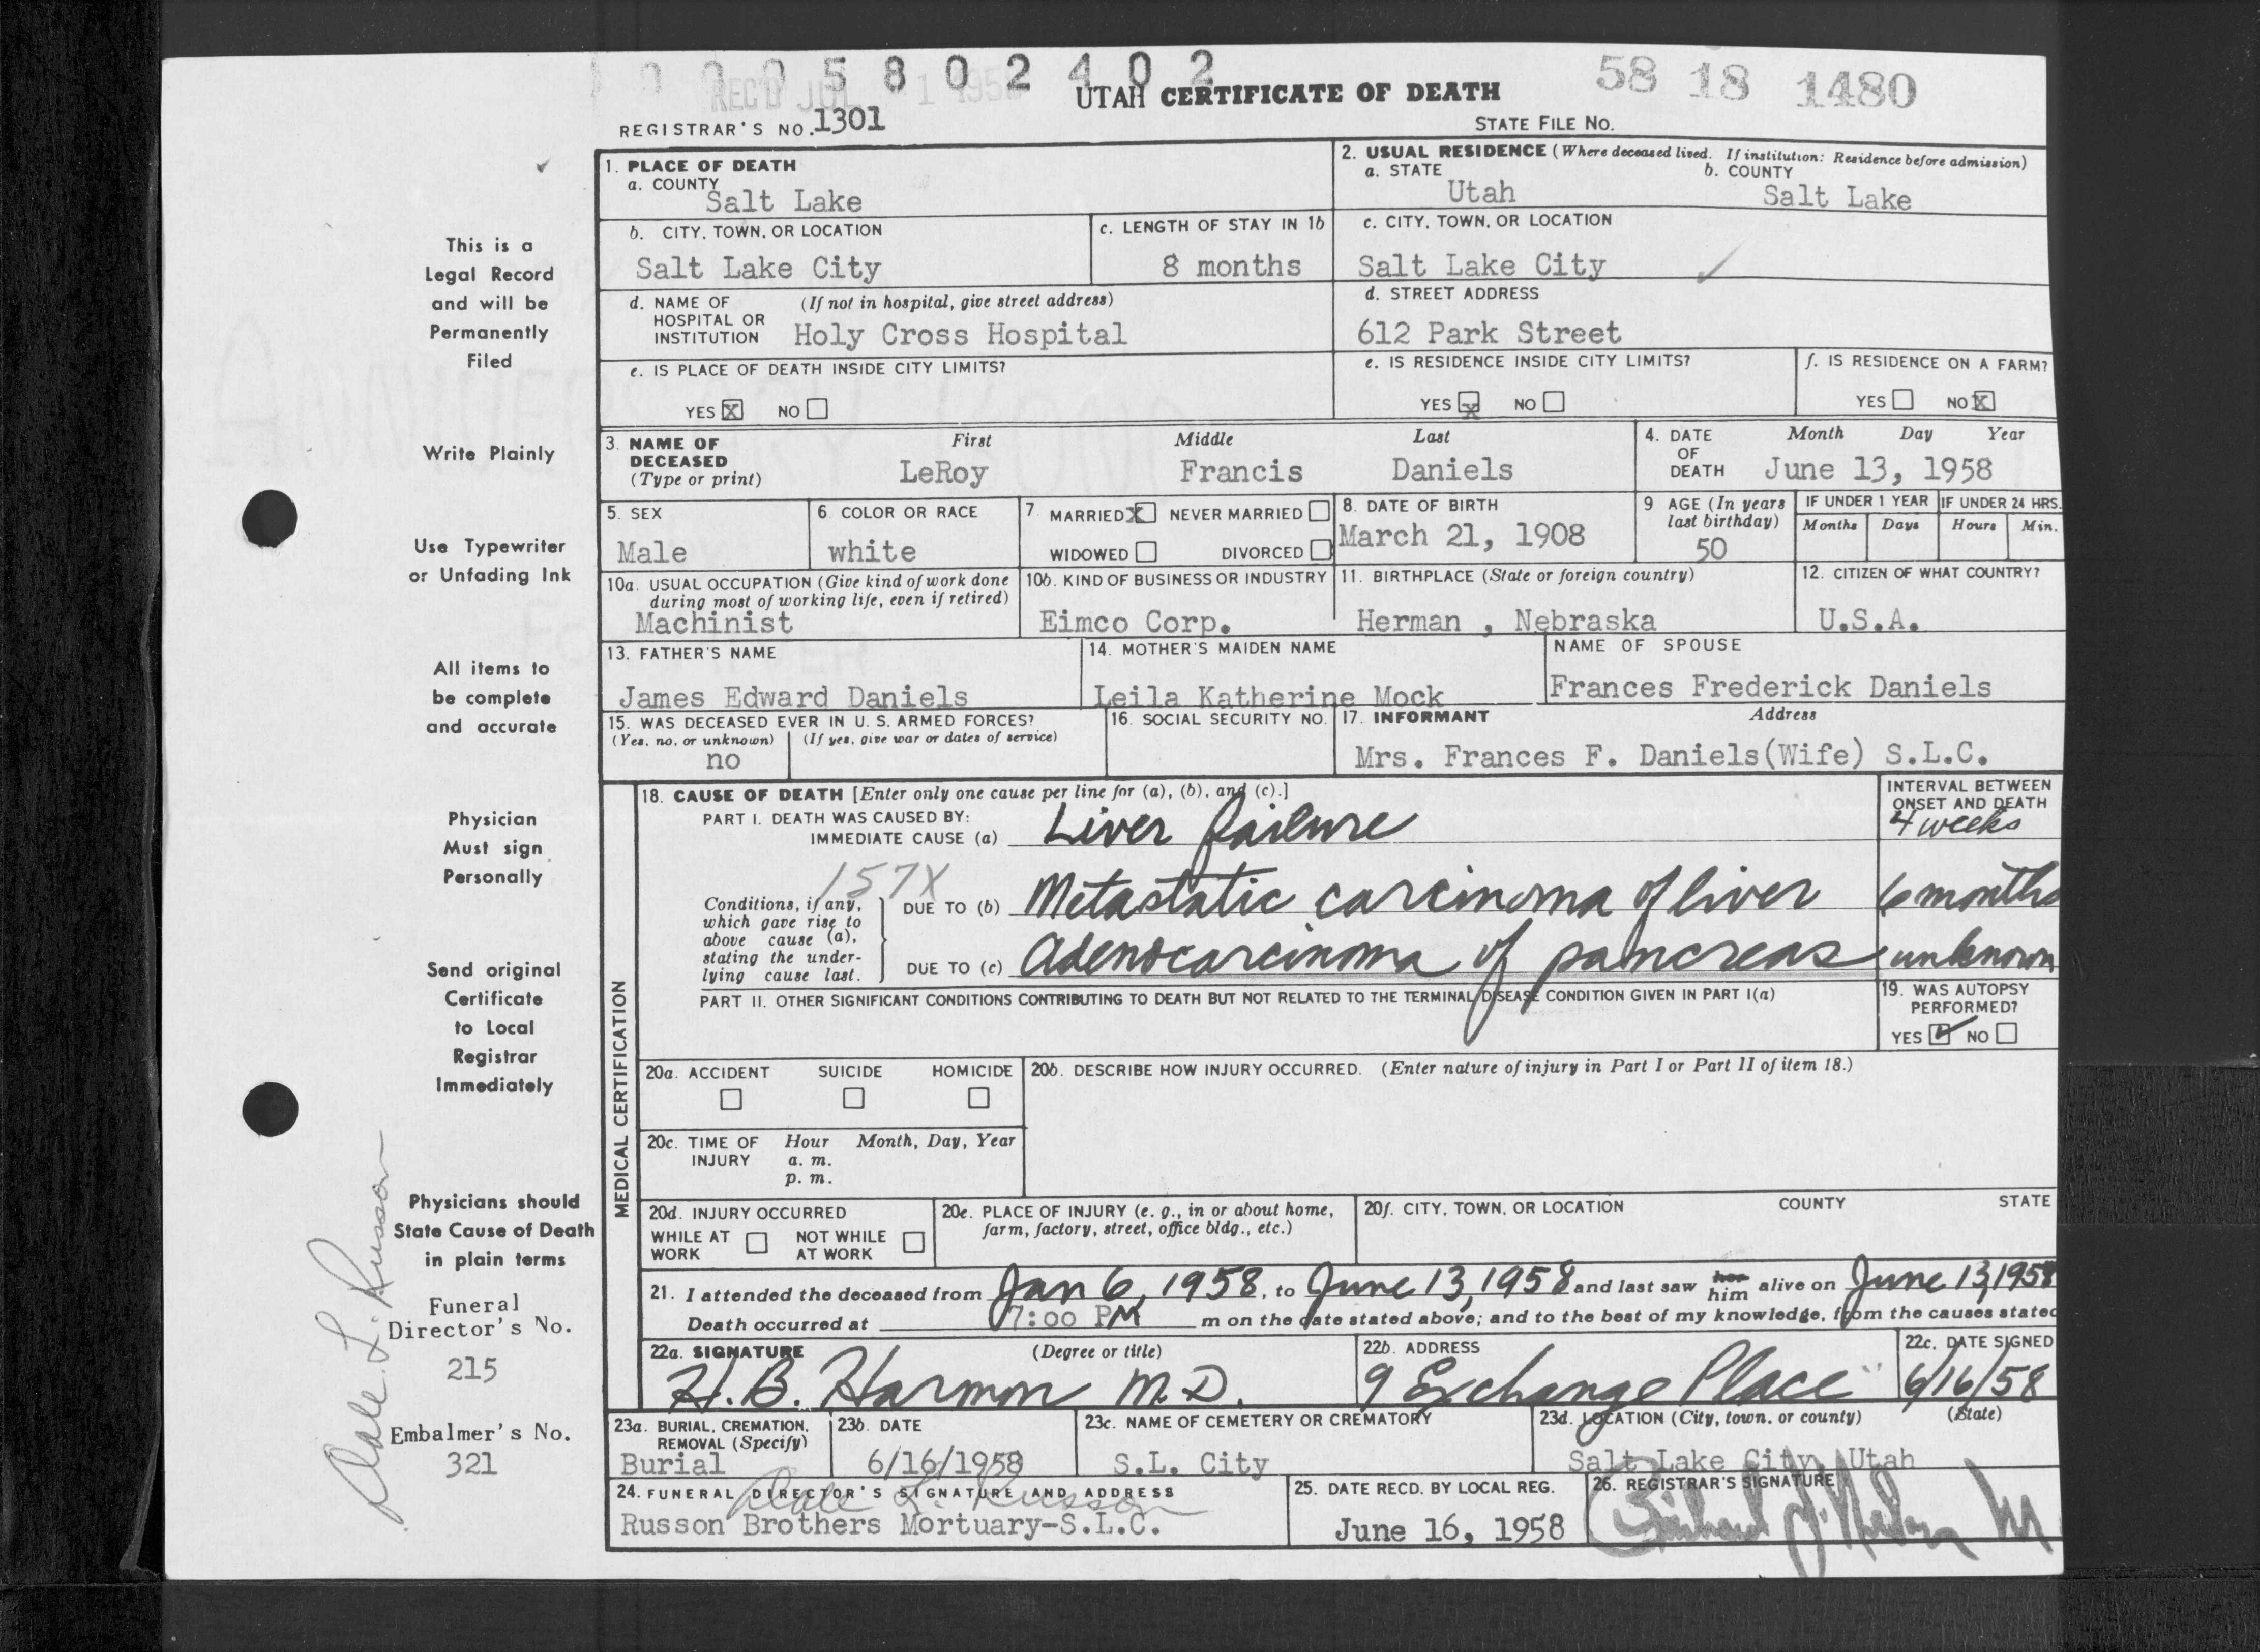 0 0 0 5 8 0 2 4 0 2
REC'D JUL 1 1958
58 18 1480
UTAH CERTIFICATE OF DEATH
REGISTRAR'S NO. 1301
STATE FILE NO.
1. PLACE OF DEATH
a. COUNTY
Salt Lake
2. USUAL RESIDENCE (Where deceased lived. If institution: Residence before admission)
a. STATE
Utah
b. COUNTY
Salt Lake
b. CITY, TOWN, OR LOCATION
Salt Lake City
c. LENGTH OF STAY IN 1b
8 months
c. CITY, TOWN, OR LOCATION
Salt Lake City
d. NAME OF HOSPITAL OR INSTITUTION
(If not in hospital, give street address)
Holy Cross Hospital
d. STREET ADDRESS
612 Park Street
e. IS PLACE OF DEATH INSIDE CITY LIMITS?
YES X NO
e. IS RESIDENCE INSIDE CITY LIMITS?
YES X NO
f. IS RESIDENCE ON A FARM?
YES NO X
3. NAME OF DECEASED
(Type or print)
First Middle Last
LeRoy Francis Daniels
4. DATE OF DEATH
Month Day Year
June 13, 1958
5. SEX
Male
6. COLOR OR RACE
white
7. MARRIED X NEVER MARRIED
WIDOWED DIVORCED
8. DATE OF BIRTH
March 21, 1908
9 AGE (In years last birthday)
50
IF UNDER 1 YEAR
Months Days
IF UNDER 24 HRS.
Hours Min.
10a. USUAL OCCUPATION (Give kind of work done during most of working life, even if retired)
Machinist
10b. KIND OF BUSINESS OR INDUSTRY
Eimco Corp.
11. BIRTHPLACE (State or foreign country)
Herman , Nebraska
12. CITIZEN OF WHAT COUNTRY?
U.S.A.
13. FATHER'S NAME
James Edward Daniels
14. MOTHER'S MAIDEN NAME
Leila Katherine Mock
NAME OF SPOUSE
Frances Frederick Daniels
15. WAS DECEASED EVER IN U. S. ARMED FORCES?
(Yes, no, or unknown) (If yes, give war or dates of service)
no
16. SOCIAL SECURITY NO.
17. INFORMANT Address
Mrs. Frances F. Daniels(Wife) S.L.C.
MEDICAL CERTIFICATION
18. CAUSE OF DEATH [Enter only one cause per line for (a), (b), and (c).]
INTERVAL BETWEEN ONSET AND DEATH
PART I. DEATH WAS CAUSED BY:
IMMEDIATE CAUSE (a) Liver failure
4 weeks
157X
Conditions, if any, which gave rise to above cause (a), stating the underlying cause last.
DUE TO (b) Metastatic carcinoma of liver
6 months
DUE TO (c) Adenocarcinoma of pancreas
unknown
PART II. OTHER SIGNIFICANT CONDITIONS CONTRIBUTING TO DEATH BUT NOT RELATED TO THE TERMINAL DISEASE CONDITION GIVEN IN PART I(a)
19. WAS AUTOPSY PERFORMED?
YES ✓ NO
20a. ACCIDENT SUICIDE HOMICIDE
20b. DESCRIBE HOW INJURY OCCURRED. (Enter nature of injury in Part I or Part II of item 18.)
20c. TIME OF INJURY Hour Month, Day, Year
a. m.
p. m.
20d. INJURY OCCURRED
WHILE AT WORK NOT WHILE AT WORK
20e. PLACE OF INJURY (e. g., in or about home, farm, factory, street, office bldg., etc.)
20f. CITY, TOWN, OR LOCATION COUNTY STATE
21. I attended the deceased from Jan 6, 1958, to June 13, 1958 and last saw her him alive on June 13, 1958
Death occurred at 7:00 PM m on the date stated above; and to the best of my knowledge, from the causes stated
22a. SIGNATURE (Degree or title)
H. B. Harmon M.D.
22b. ADDRESS
9 Exchange Place
22c. DATE SIGNED
6/16/58
23a. BURIAL, CREMATION, REMOVAL (Specify)
Burial
23b. DATE
6/16/1958
23c. NAME OF CEMETERY OR CREMATORY
S.L. City
23d. LOCATION (City, town, or county) (State)
Salt Lake City, Utah
24. FUNERAL DIRECTOR'S SIGNATURE AND ADDRESS
Dale L. Russon
Russon Brothers Mortuary-S.L.C.
25. DATE RECD. BY LOCAL REG.
June 16, 1958
26. REGISTRAR'S SIGNATURE
This is a
Legal Record
and will be
Permanently
Filed
Write Plainly
Use Typewriter
or Unfading Ink
All items to
be complete
and accurate
Physician
Must sign
Personally
Send original
Certificate
to Local
Registrar
Immediately
Physicians should
State Cause of Death
in plain terms
Funeral
Director's No.
215
Embalmer's No.
321
Dale L. Russon